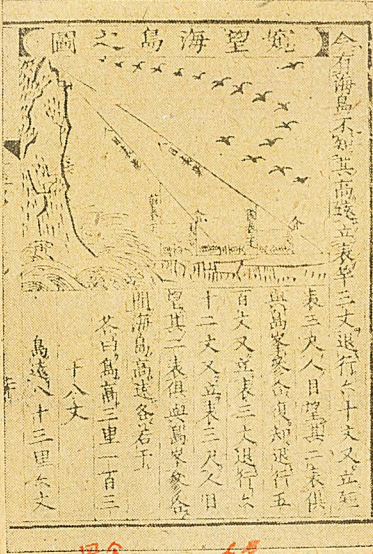 窺望海島之圖
今有海島不知其高遠立表竿三丈退行六十丈又立短
表三尺人目望其二表俱
與島峯參合復知退行五
百丈又立表三丈退行六
十二丈又立表三尺人目
望其二表俱與島峯參合
問海島高遠各若干
荅曰島高三里一百三
十八丈
島遠八十三里六丈